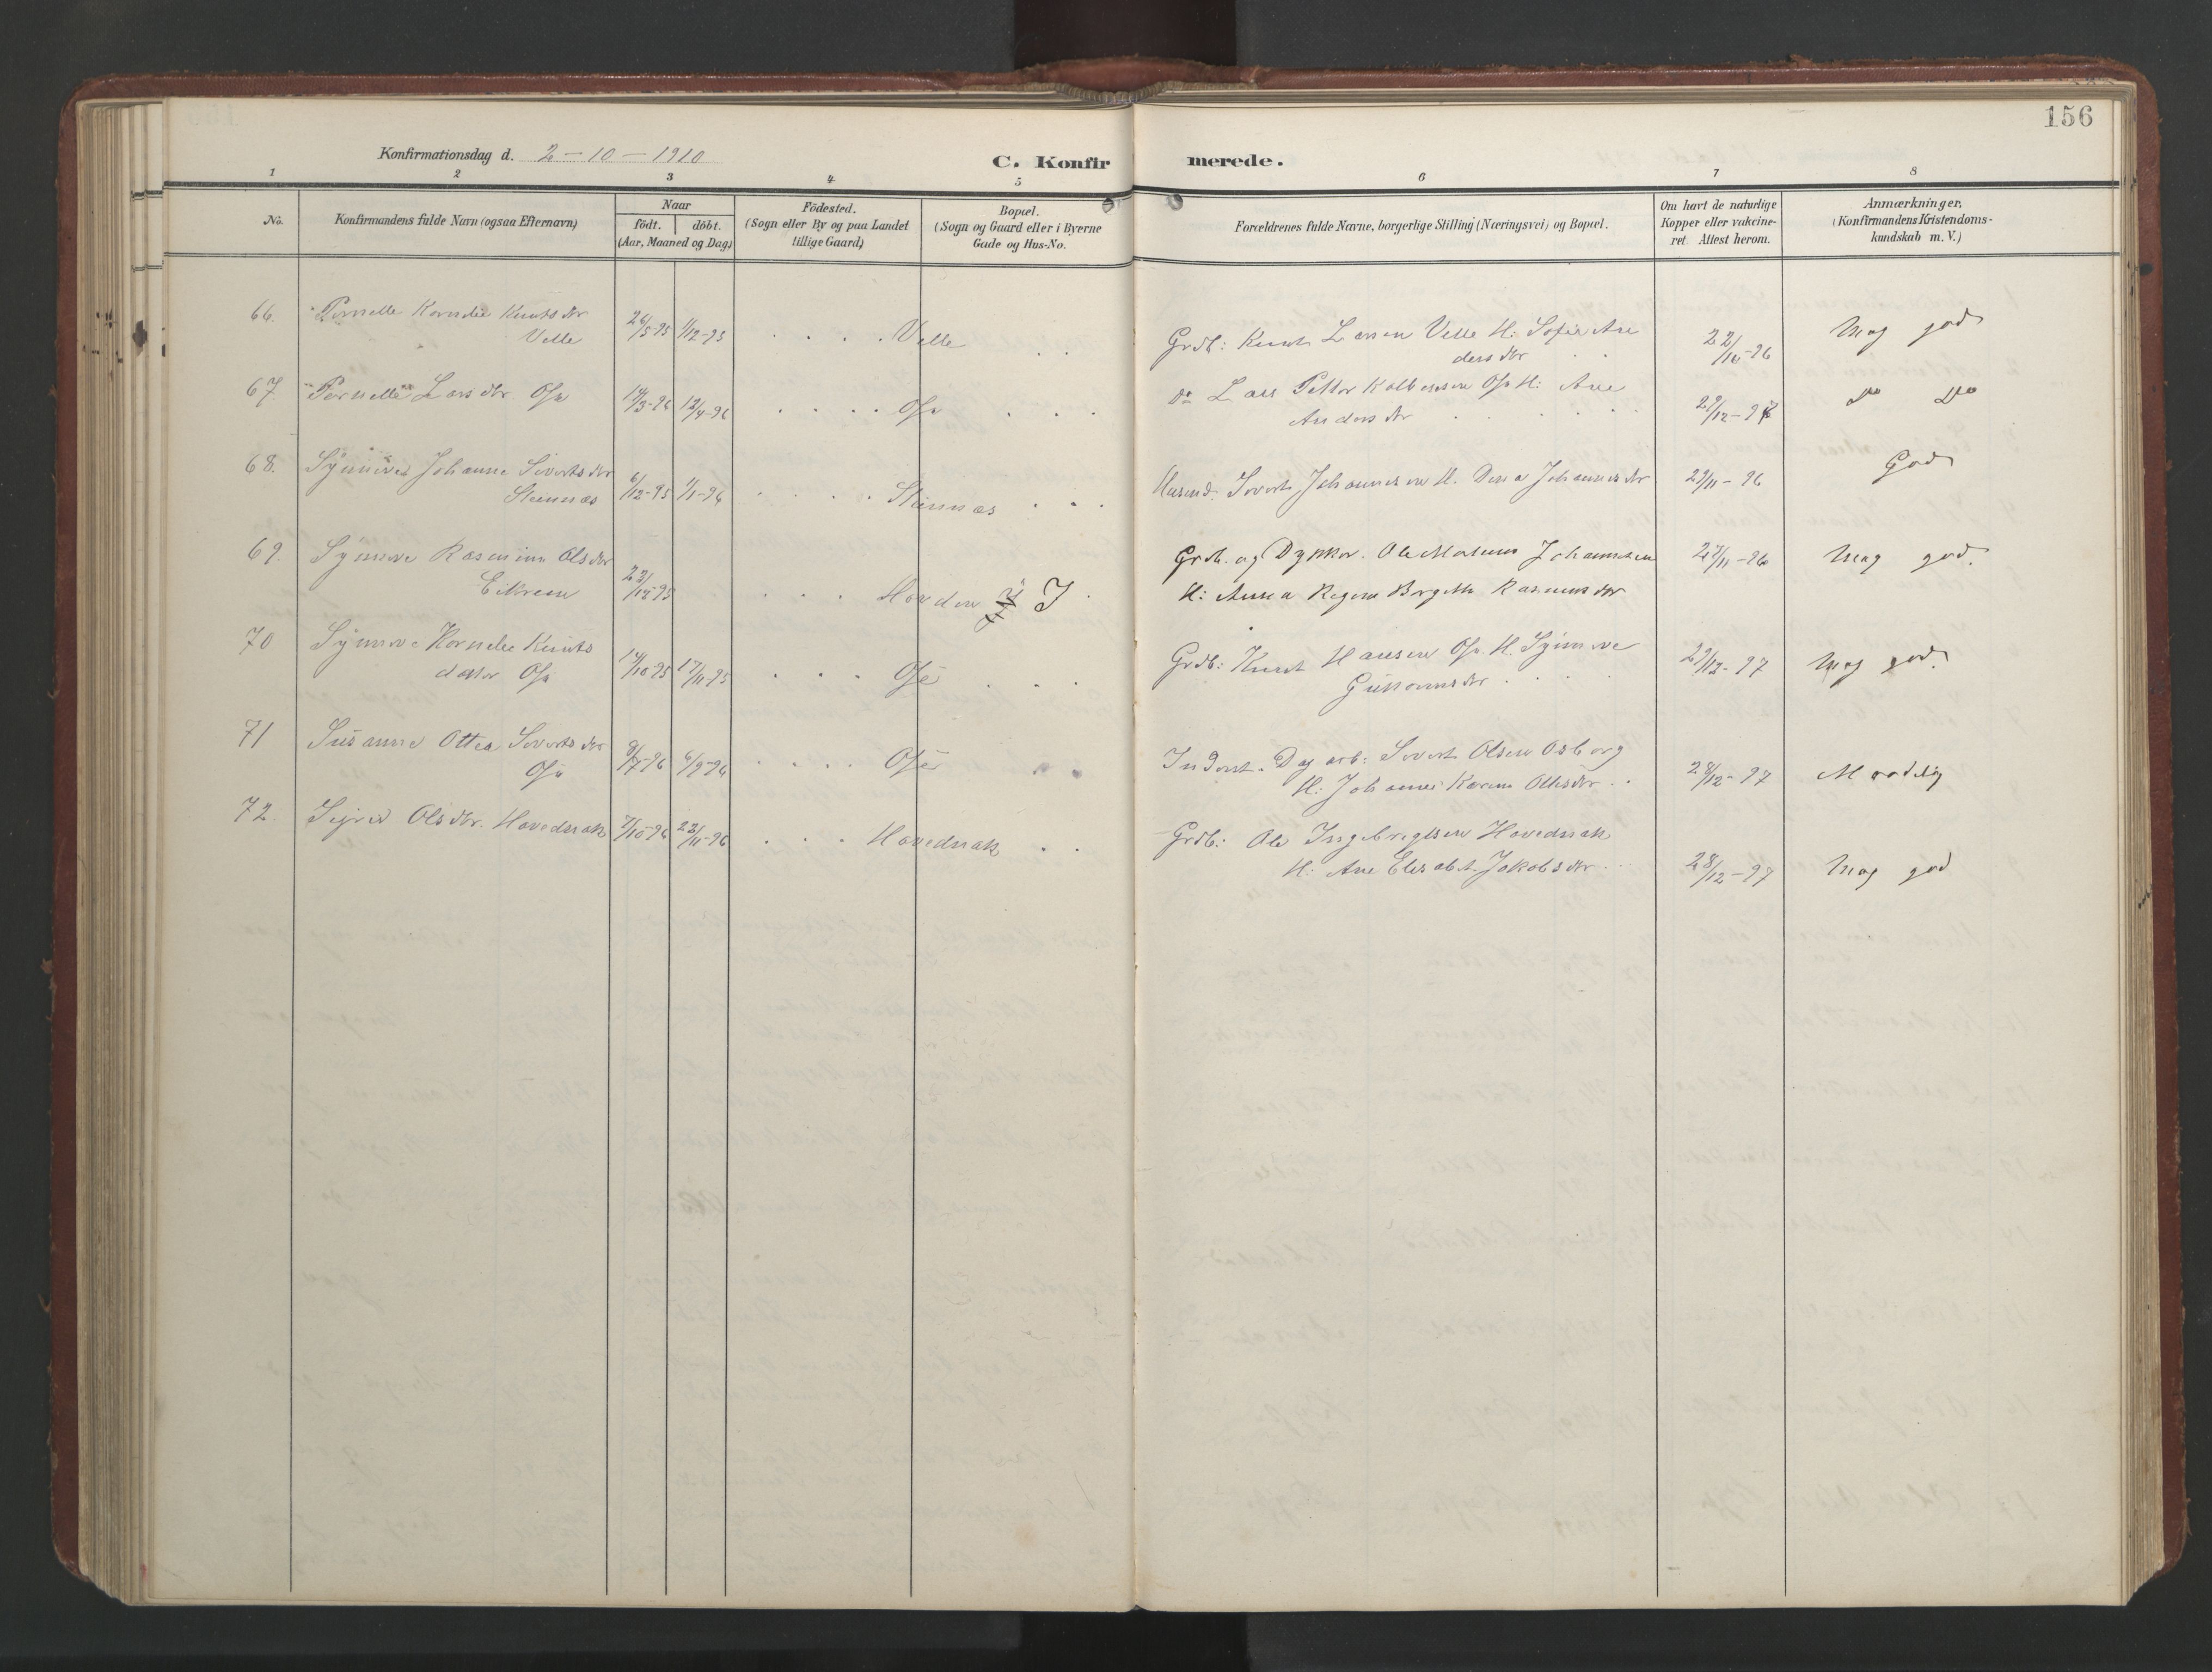 156
Konfirmationsdag d. 2-10-1910
C. Konfirmerede.
1 2 3 4 5 6 7 8
No.
Konfirmandens fulde Navn (ogsaa Efternavn)
Naar
födt. döbt.
(Aar, Maaned og Dag)
Födested.
(Sogn eller By og paa Landet
tillige Gaard)
Bopæl.
(Sogn og Gaard eller i Byerne
Gade og Hus-No.
Forældrenes fulde Navne, borgerlige Stilling (Næringsvei) og Bopæl.
Om havt de naturlige
Kopper eller vakcine-
ret. Attest herom.
Anmærkninger.
(Konfirmandens Kristendoms-
kundskab m. V.)
66. Pernelle Kornelie Knutsdtr
Velle 26/5-95 1/12-95 Velle
Grdb: Knut Larsen Velle H: Sofie An
dersdtr 22/10-96 Meg god
67. Pernelle Larsdtr Ose 14/3-96 12/4-96 Ose
Do Lars Petter Kolbensen Ose H: Ane
Andersdtr 29/12-97 Do Do
68. Synnøve Johanne Sivertsdtr
Stennes 6/12-95 1/1-96 Stennes
Husmd. Sivert Johannesen H. Johannesdtr 29/11-96 God
69. Synnøve Rasmine Olsdtr
Eikrem 23/12-95 Hovden I
Grdb. og Ole Johannesen
H: Anna Regine Birgitte Rasmusdtr 27/11-96 Meg god.
70 Synnøve Kornelie Knuts
datter Ose 14/10-95 17/11-95 Ose
Grdb: Knut Hansen Ose H. Synnøve
29/12-97 Meg god.
71 Susanne Ottea Sivertsdtr
Ose 8/7-96 6/9-96 Ose
Inderst. Dagarb: Sivert Olsen Osborg
H: Johanne Karine Ottesdtr 28/12-97 Maadelig
72. Sigrid Olsdtr. Hovednak 7/10-96 22/11-96 Hovednak
Grdb: Ole Ingebrigtsen Hovednak
H: Ane Elisabet Jakobsdtr 28/12-97 Meg god